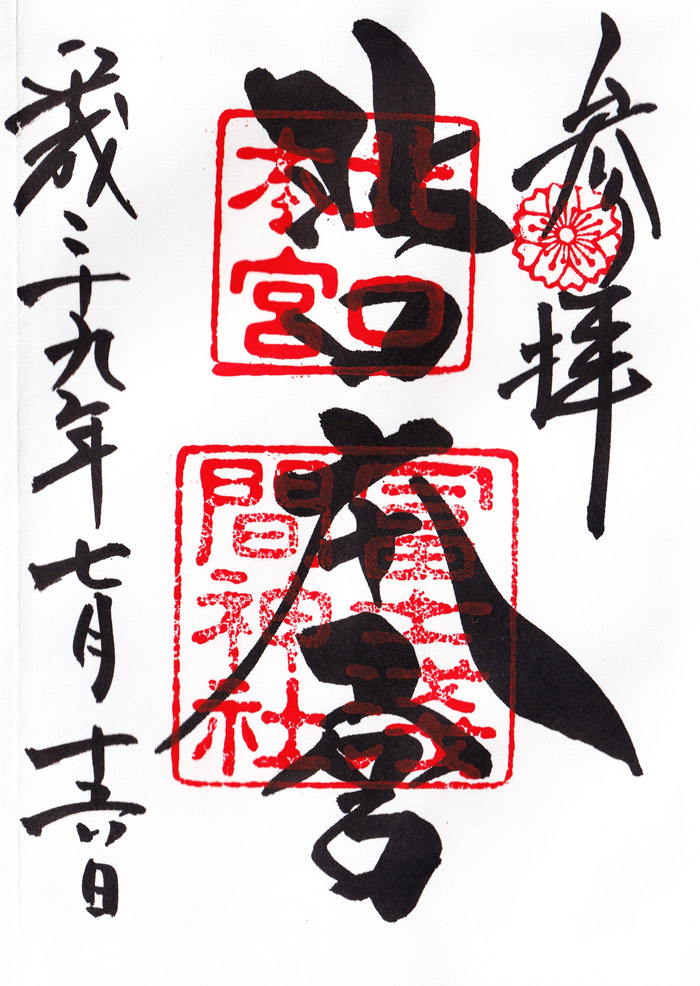 参拝
北口本宮
北口
本宮
冨士淺
間神社
平成二十九年七月十六日